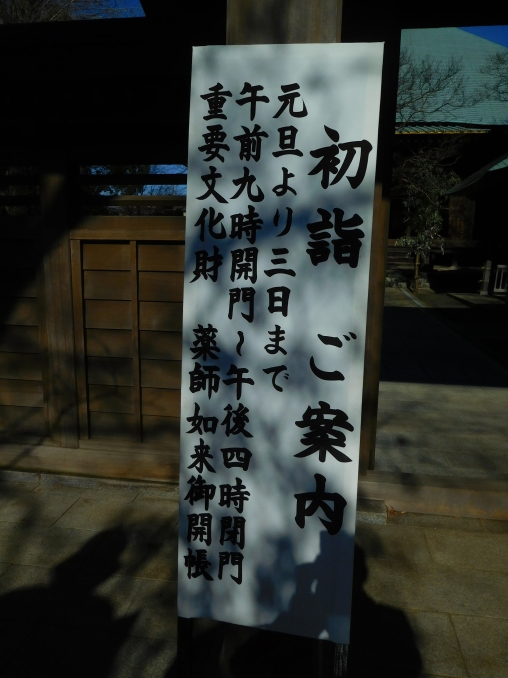 初詣 ご案内
元旦より三日まで
午前九時開門～午後四時閉門
重要文化財 薬師如来御開帳